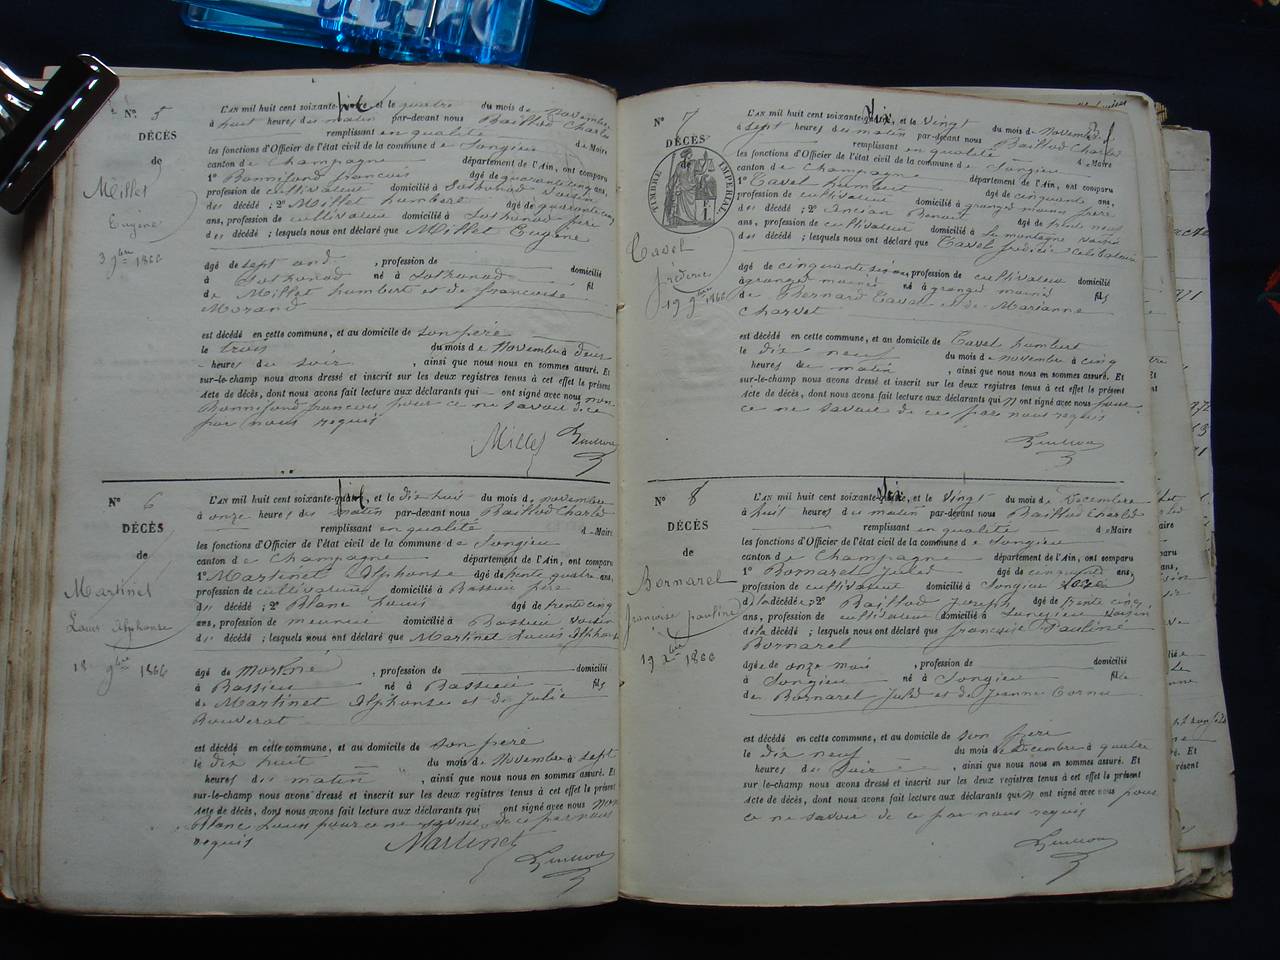 N° 5
DÉCÈS
de
Millet
Eugène
3 9bre 1866
L'AN mil huit cent soixante-six et le quatre du mois de Novembre
à huit heures du matin par-devant nous Baillod Charles
remplissant en qualité de Maire
les fonctions d'Officier de l'état civil de la commune de Songieu
canton de Champagne département de l'Ain, ont comparu
1° Bonnifond francois âgé de quarante cinq ans,
profession de cultivateur domicilié à Sothonod voisin
du décédé ; 2° Millet humbert âgé de quarante cinq
ans, profession de cultivateur domicilié à Sothonod père
du décédé ; lesquels nous ont déclaré que Millet Eugène
âgé de sept ans , profession de domicilié
à Sothonod né à Sothonod fil
de Millet humbert et de francoise
Morand
est décédé en cette commune, et au domicile de son père
le trois du mois de Novembre à deux
heures du soir , ainsi que nous nous en sommes assuré. Et
sur-le-champ nous avons dressé et inscrit sur les deux registres tenus à cet effet le présent
Acte de décès, dont nous avons fait lecture aux déclarants qui ont signé avec nous non
Bonnifond francois pour ce ne savoir de ce
par nous requis
Millet
N° 6
DÉCÈS
de
Martinet
Louis Alphonse
18 9bre 1866
L'AN mil huit cent soixante-six, et le dix huit du mois de novembre
à onze heures du matin par-devant nous Baillod Charles
remplissant en qualité de Maire
les fonctions d'Officier de l'état civil de la commune de Songieu
canton de Champagne département de l'Ain, ont comparu
1° Martinet Alphonse âgé de trente quatre ans,
profession de cultivateur domicilié à Bassieu père
du décédé ; 2° Blanc Louis âgé de trente cinq
ans, profession de meunier domicilié à Bassieu voisin
du décédé ; lesquels nous ont déclaré que Martinet Louis Alphonse
âgé de mort né , profession de domicilié
à Bassieu né à Bassieu fils
de Martinet Alphonse et de Julie
Bouverat
est décédé en cette commune, et au domicile de son père
le dix huit du mois de Novembre à sept
heures du matin , ainsi que nous nous en sommes assuré. Et
sur-le-champ nous avons dressé et inscrit sur les deux registres tenus à cet effet le présent
Acte de décès, dont nous avons fait lecture aux déclarants qui ont signé avec nous non
Blanc Louis pour ce ne savoir de ce par nous
requis
Martinet
N° 7
DÉCÈS
de
TIMBRE IMPÉRIAL
Tavel
frédéric
19 9bre 1866
L'AN mil huit cent soixante-six, et le vingt du mois de Novembre
à sept heures du matin par-devant nous Baillod Charles
remplissant en qualité de Maire
les fonctions d'Officier de l'état civil de la commune de Songieu
canton de Champagne département de l'Ain, ont comparu
1° Tavel humbert âgé de cinquante ans,
profession de cultivateur domicilié à granges frère
du décédé ; 2° Ancian Benoit âgé de trente neuf
ans, profession de cultivateur domicilié à la montagne voisin
du décédé ; lesquels nous ont déclaré que Tavel frédéric célibataire
âgé de cinquante six ans, profession de cultivateur domicilié
à granges né à granges fils
de Bernard Tavel et de Marianne
Charvet
est décédé en cette commune, et au domicile de Tavel humbert
le dix neuf du mois de novembre à cinq
heures du matin , ainsi que nous nous en sommes assuré. Et
sur-le-champ nous avons dressé et inscrit sur les deux registres tenus à cet effet le présent
Acte de décès, dont nous avons fait lecture aux déclarants qui n'ont signé avec nous pour
ce ne savoir de ce par nous requis
N° 8
DÉCÈS
de
Bornarel
françoise pauline
19 Xbre 1866
L'AN mil huit cent soixante-six, et le vingt du mois de Décembre
à huit heures du matin par-devant nous Baillod Charles
remplissant en qualité de Maire
les fonctions d'Officier de l'état civil de la commune de Songieu
canton de Champagne département de l'Ain, ont comparu
1° Bornarel Jules âgé de cinquante ans,
profession de cultivateur domicilié à Songieu père
de la décédée ; 2° Baillod Joseph âgé de trente cinq
ans, profession de cultivateur domicilié à voisin
de la décédé ; lesquels nous ont déclaré que françoise Pauline
Bornarel
âgé de onze mois , profession de domicilié
à Songieu né à Songieu fille
de Bornarel Jules et de Jeanne Cornu
est décédé en cette commune, et au domicile de son père
le dix neuf du mois de Décembre à quatre
heures du soir , ainsi que nous nous en sommes assuré. Et
sur-le-champ nous avons dressé et inscrit sur les deux registres tenus à cet effet le présent
Acte de décès, dont nous avons fait lecture aux déclarants qui n'ont signé avec nous pour
ce ne savoir de ce par nous requis